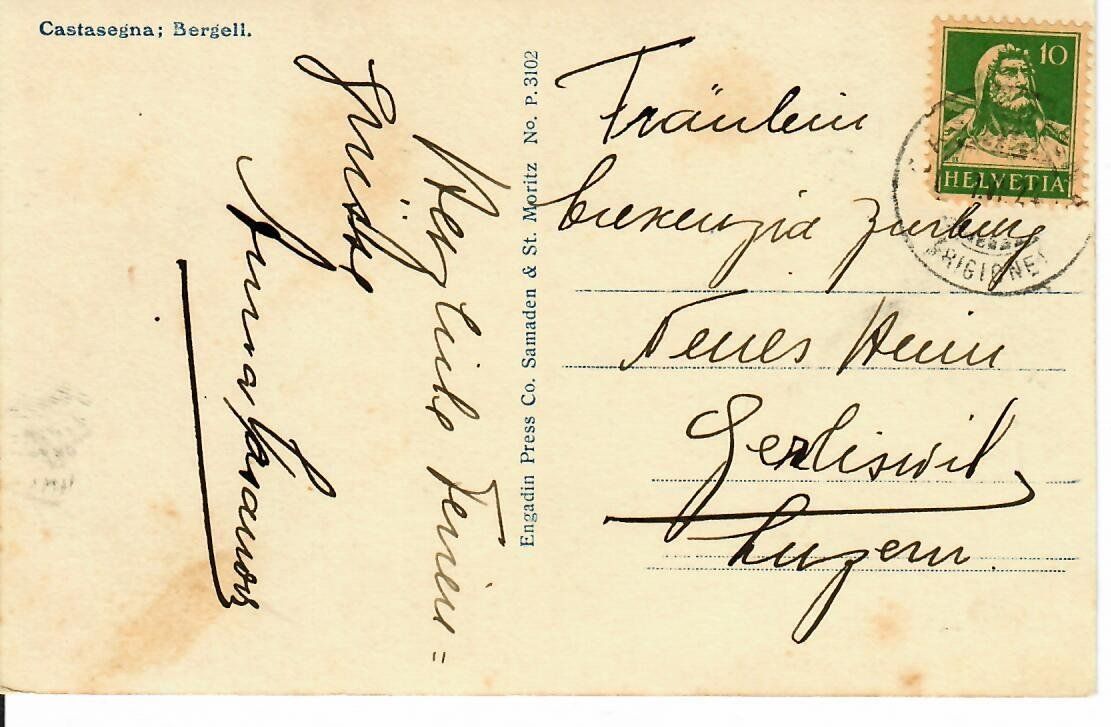 Castasegna; Bergell.
Herzliche Ferien=
Grüsse
Anna
Engadin Press Co. Samaden & St. Moritz No. P. 3102
10
HELVETIA
Fräulein
Neues Heim
Gerliswil
Luzern.